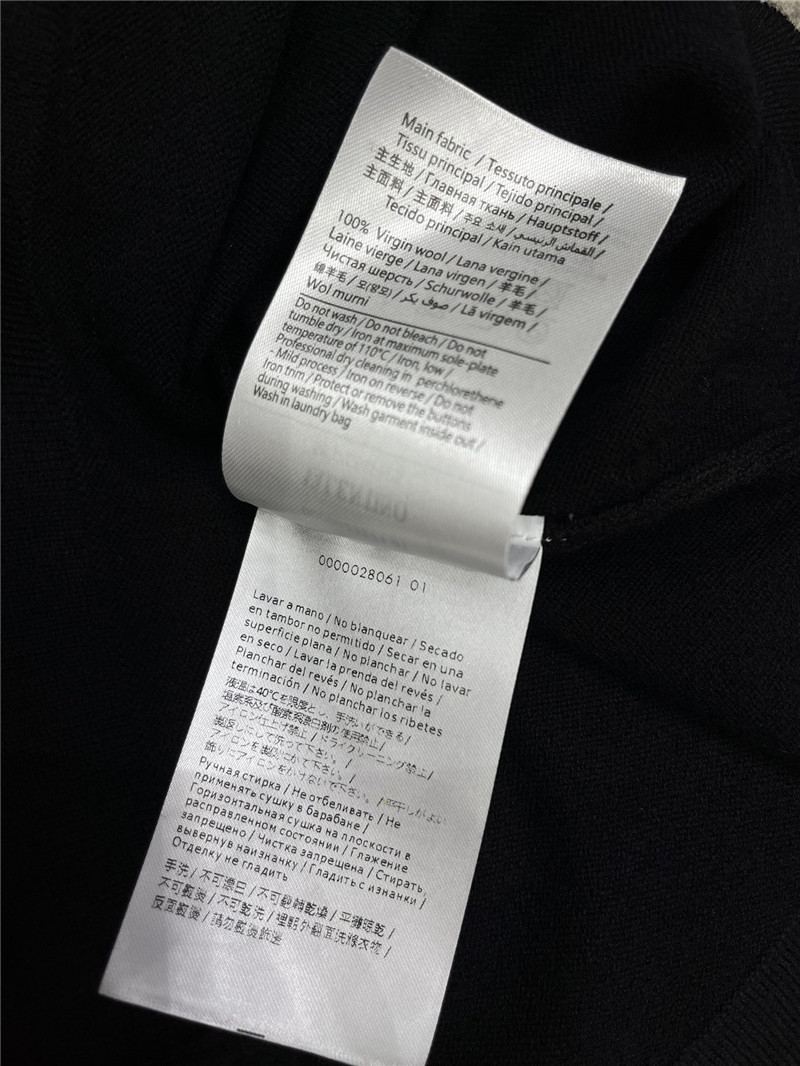 Main fabric / Tessuto principale /
Tissu principal / Tejido principal /
主生地 / Главная ткань / Hauptstoff /
主面料 / 主面料 / 주요 소새 / القماش الرئيسي /
Tecido principal / Kain utama
100% Virgin wool / Lana vergine /
Laine vierge / Lana virgen / 羊毛 /
Чистая шерсть / Schurwolle / 羊毛 /
綿羊毛 / 모(양모) / صوف بكر / Lã virgem /
Wol murni
Do not wash / Do not bleach / Do not
tumble dry / Iron at maximum sole-plate
temperature of 110°C / Iron, low /
Professional dry cleaning in perchlorethene
- Mild process / Iron on reverse / Do not
Iron trim / Protect or remove the buttons
during washing / Wash garment inside out /
Wash in laundry bag
0000028061 01
Lavar a mano / No blanquear / Secado
en tambor no permitido / Secar en una
superficie plana / No planchar / No lavar
en seco / Lavar la prenda del revés /
Planchar del revés / No planchar la
terminación / No planchar los ribetes
液温は40℃を限度とし、手洗いができる/
塩素系及び酸素系漂白剤の使用禁止/
アイロン仕上げ禁止 / ドライクリーニング禁止/
裏返しにして洗って下さい。/
アイロンを裏側にかけて下さい。/
飾りにアイロンをかけないで下さい。/平干しがよい
Ручная стирка / Не отбеливать / Не
применять сушку в барабане /
Горизонтальная сушка на плоскости в
расправленном состоянии / Глажение
запрещено / Чистка запрещена / Стирать,
вывернув наизнанку / Гладить с изнанки /
Отделку не гладить
手洗 / 不可漂白 / 不可翻轉乾燥 / 平攤晾乾 /
不可熨燙 / 不可乾洗 / 裡朝外翻面洗滌衣物 /
反面熨燙 / 請勿熨燙飾邊